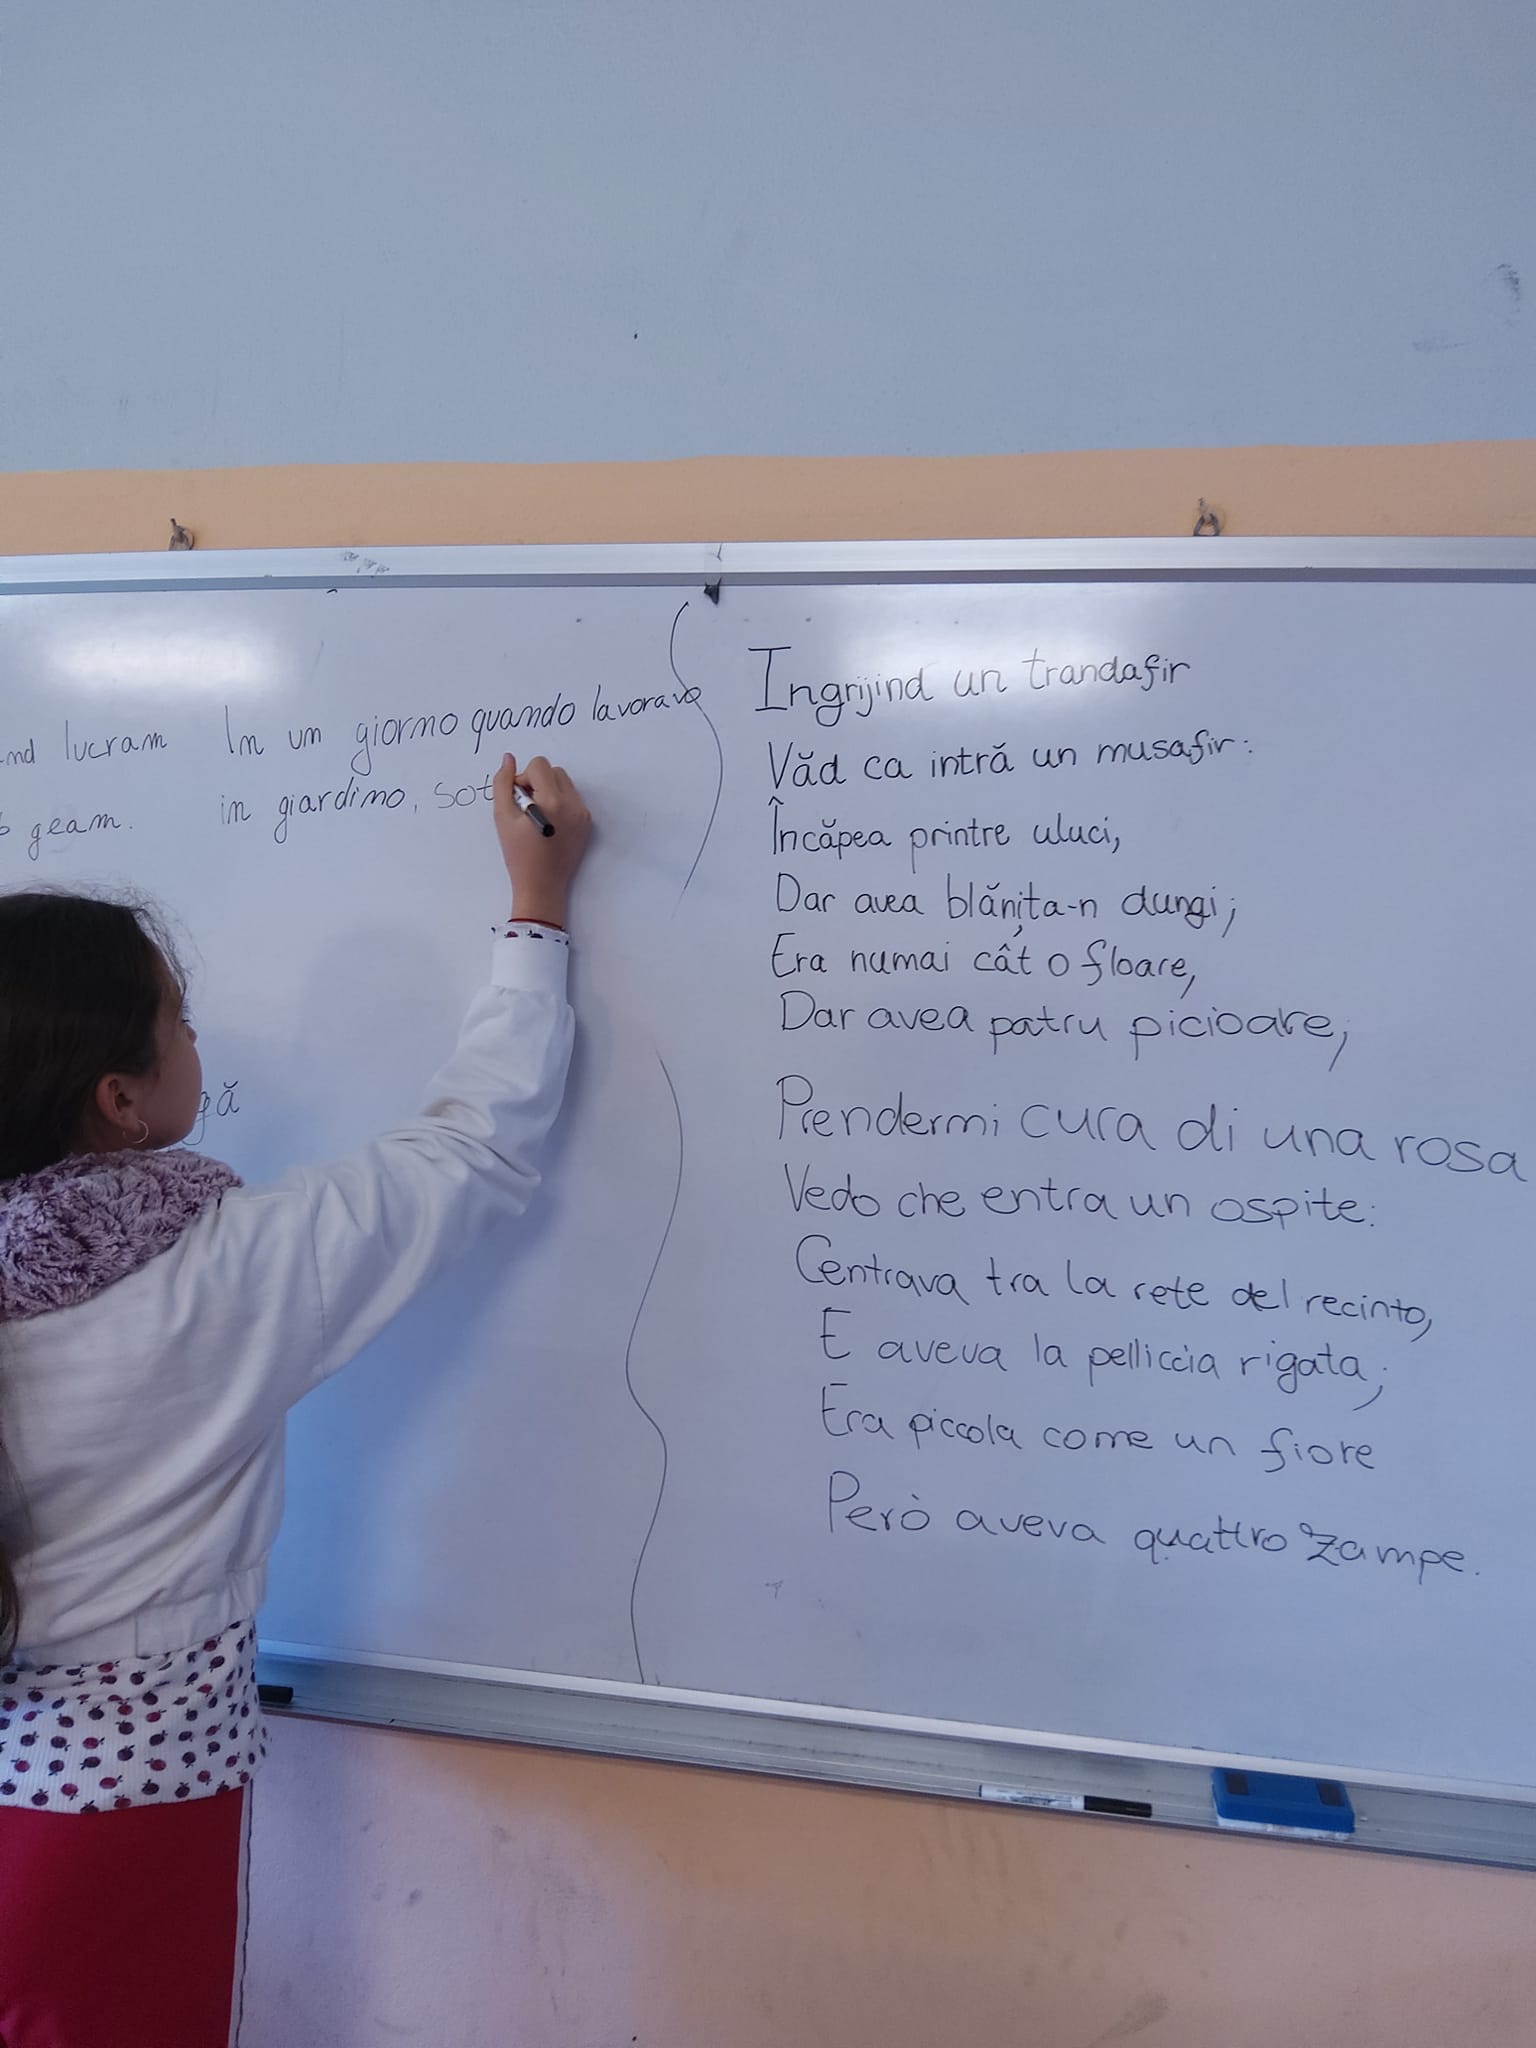 lucram
geam.
In un giorno quando lavoravo
in giardino, sot
gă
Ingrijind un trandafir
Văd ca intră un musafir:
Încăpea printre uluci,
Dar avea blănița-n dungi;
Era numai cât o floare,
Dar avea patru picioare;
Prendermi cura di una rosa
Vedo che entra un ospite:
Centrava tra la rete del recinto,
E aveva la pelliccia rigata;
Era piccola come un fiore
Però aveva quattro zampe.